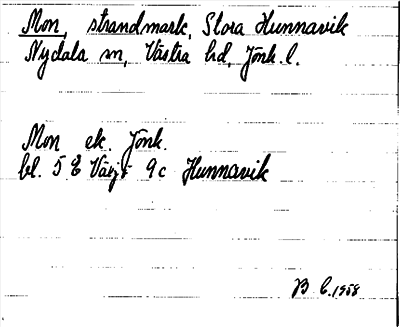 Mon, strandmark, Stora Hunnavik
Nydala sn, Västra hd, Jönk. l.
Mon ek. Jönk.
bl. 5 E 9 c Hunnavik
B 1958